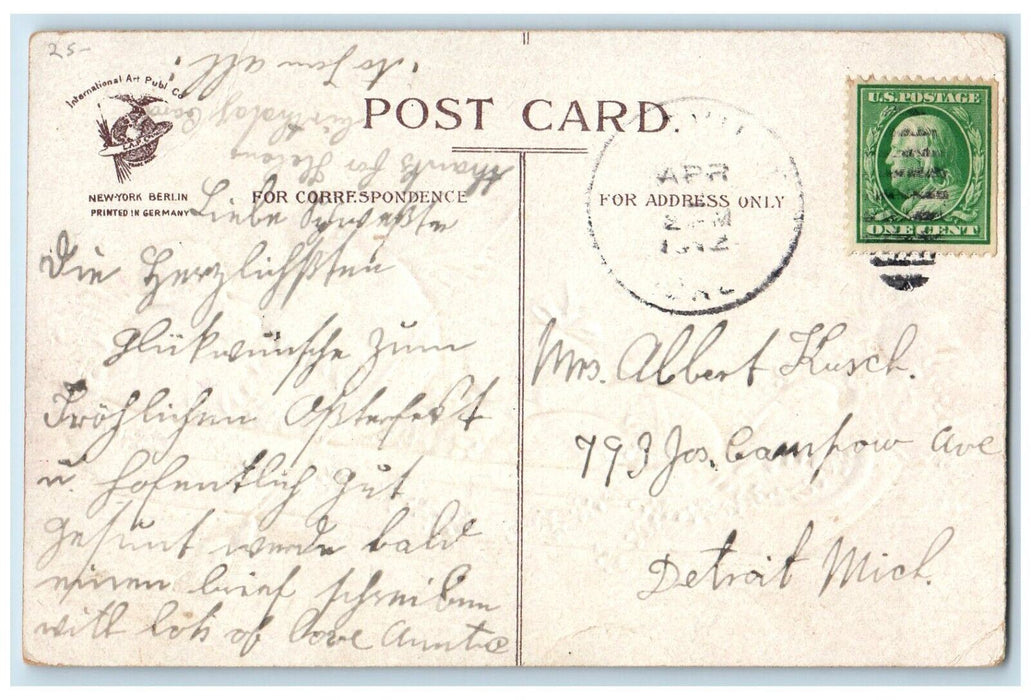 25-
to you all
Birthday
thanks for Helens
International Art Publ. Co.
NEW-YORK BERLIN
PRINTED IN GERMANY
POST CARD.
FOR CORRESPONDENCE
FOR ADDRESS ONLY
APR
1912
U.S. POSTAGE
ONE CENT
Liebe Schweßter
Die Herzlichßten
Glükwünsche zum
Fröhlichen Oßterfeßt
u. hofentlich gut
gesunt werde bald
einen brief schreiben
with lots of love Auntie
Mrs. Albert Kusch.
793 Jos. Campow Ave
Detroit Mich.